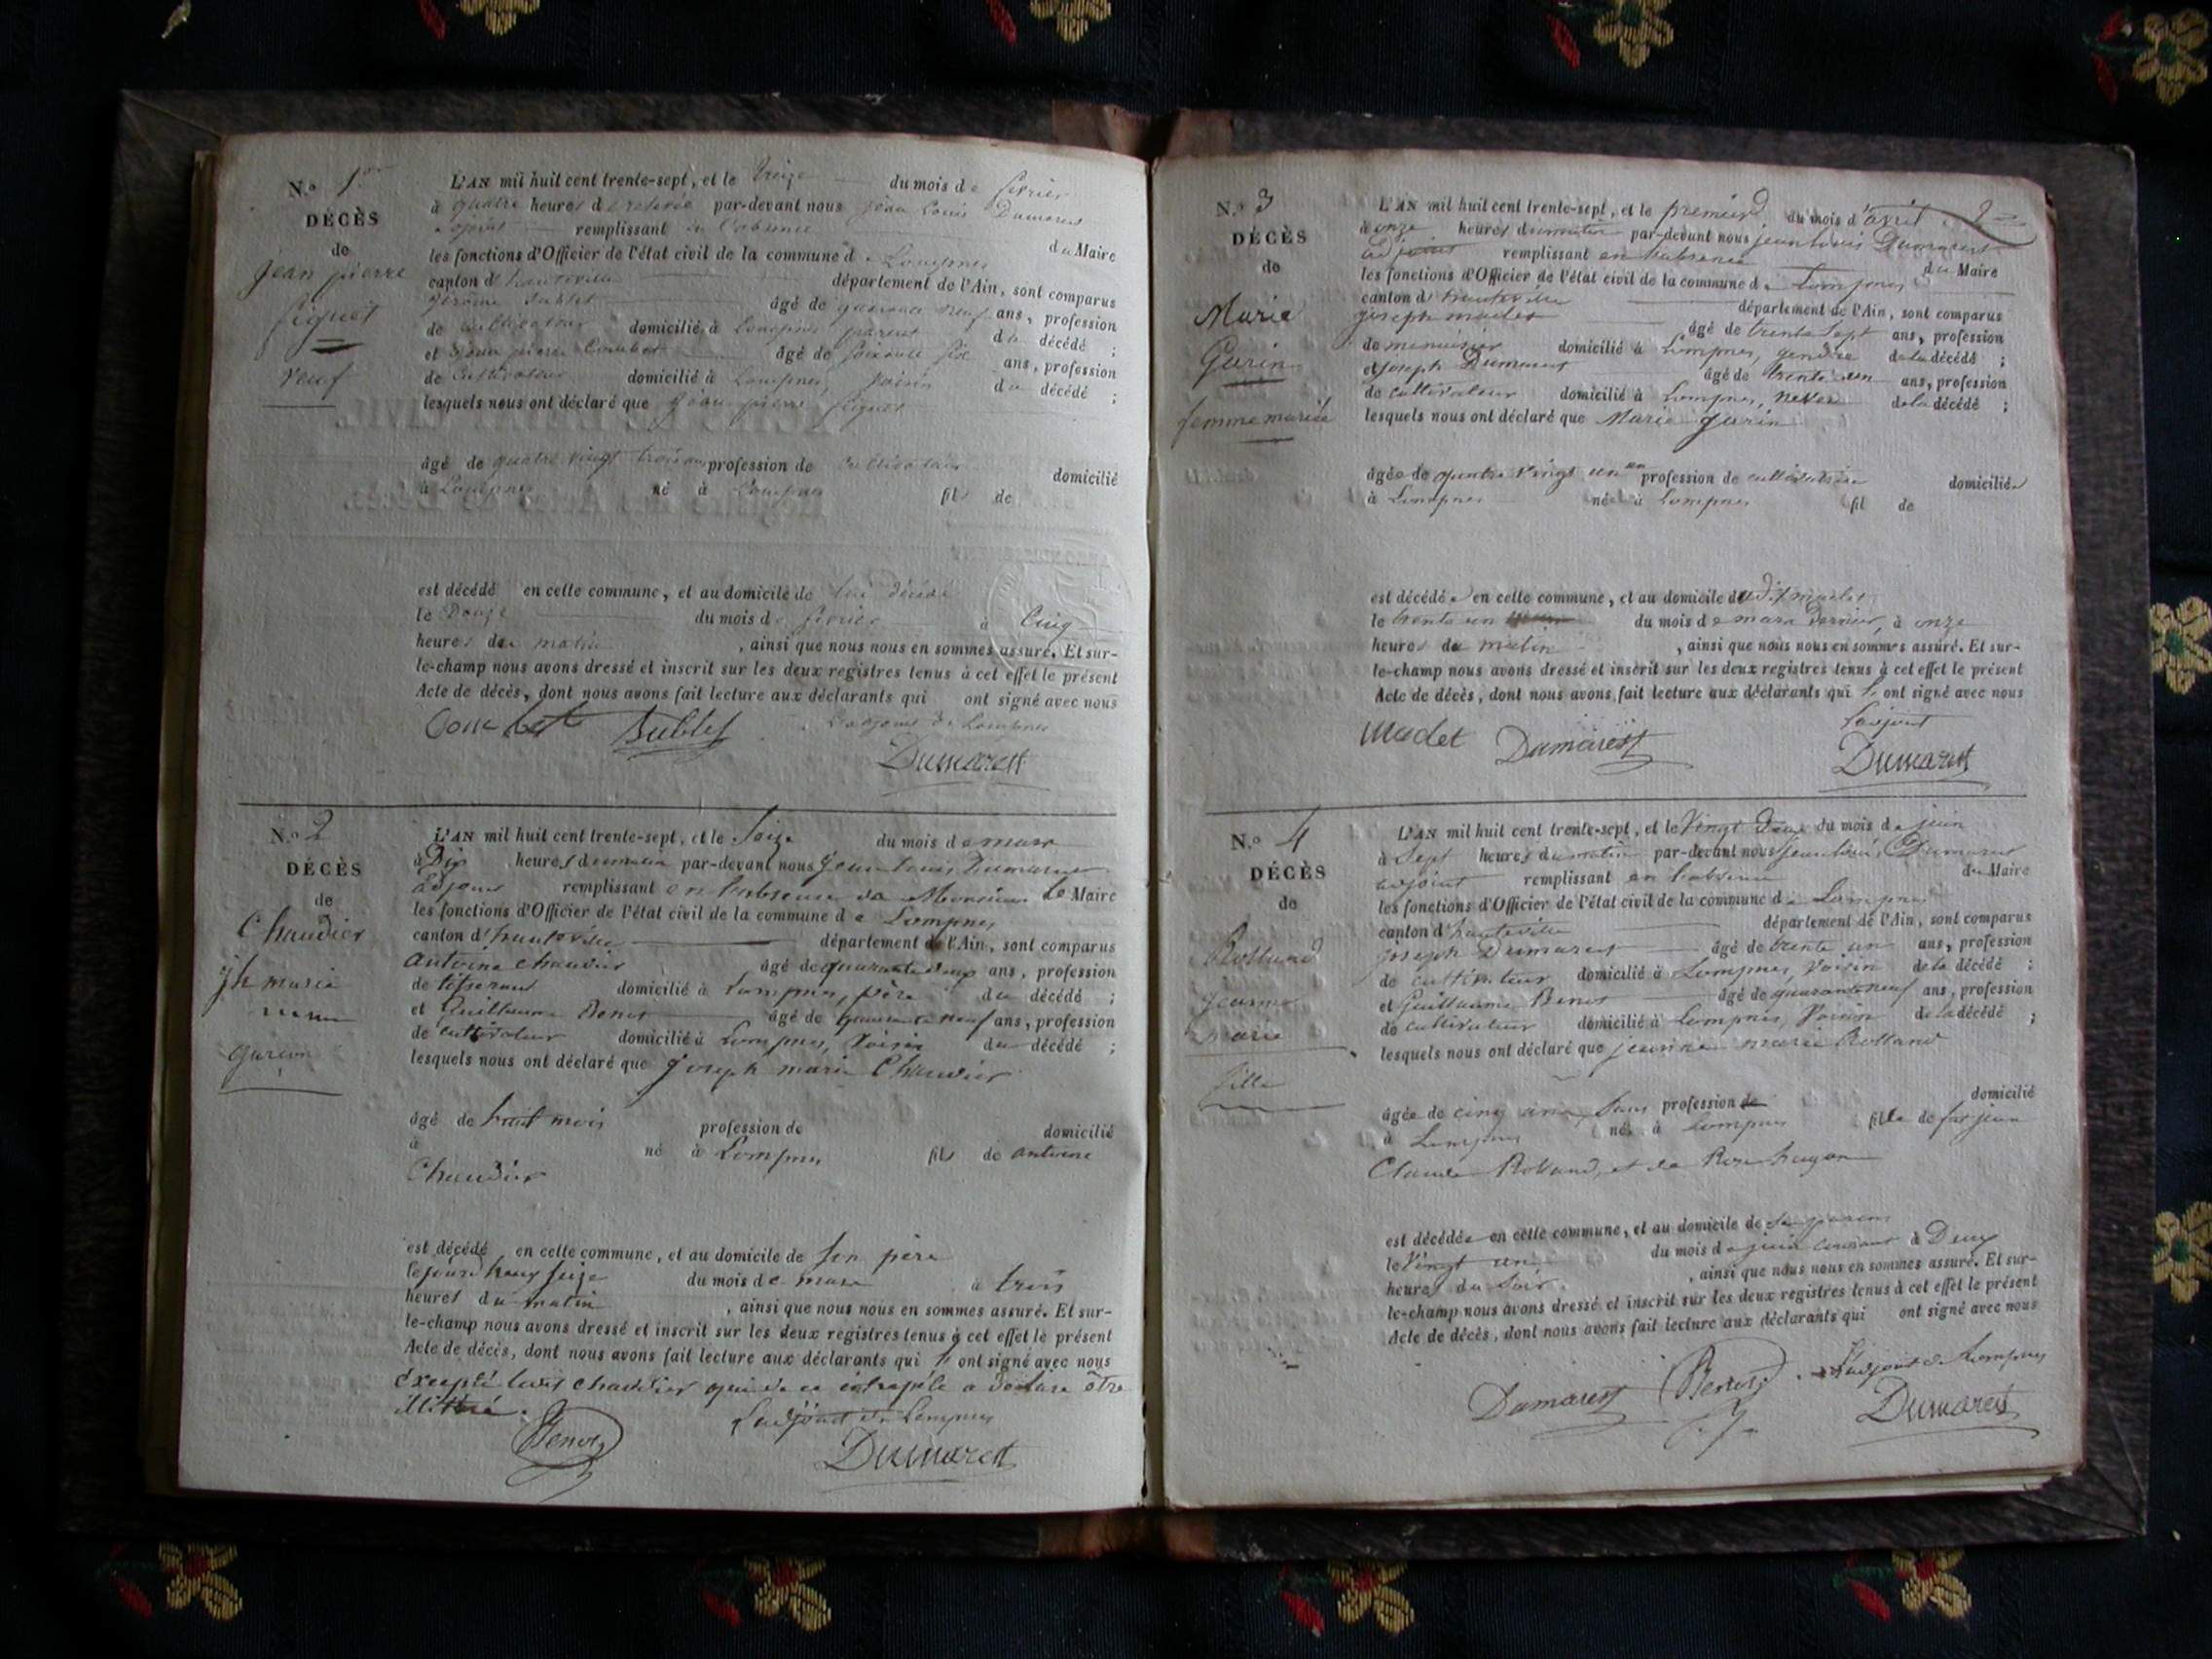 N.o 1er
DÉCÈS
de
jean pierre
veuf
L'AN mil huit cent trente-sept, et le treize du mois de février
à quatre heures de relevée par-devant nous jean Louis Dumarest
adjoint remplissant en l'absence du Maire
les fonctions d'Officier de l'état civil de la commune de Lompnes
canton d'hauteville département de l'Ain, sont comparus
jérome Sublet âgé de quarante neuf ans, profession
de cultivateur domicilié à Lompnes parent du décédé ;
et jean pierre Coulet âgé de soixante six ans, profession
de cultivateur domicilié à Lompnes, voisin du décédé ;
lesquels nous ont déclaré que jean pierre
âgé de quatre vingt trois ans profession de cultivateur domicilié
à Lompnes né à Lompnes fils de
est décédé en cette commune, et au domicile de lui décédé
le Douze du mois de février à Cinq
heures du matin, ainsi que nous nous en sommes assuré. Et sur-
le-champ nous avons dressé et inscrit sur les deux registres tenus à cet effet le présent
Acte de décès, dont nous avons fait lecture aux déclarants qui ont signé avec nous
Sublet L'adjoint de Lompnes
Dumarest
N.o 2
DÉCÈS
de
Chaudier
jh marie
garçon
L'AN mil huit cent trente-sept, et le Seize du mois de mars
à Dix heures du matin par-devant nous jean Louis Dumarest
adjoint remplissant en l'absence de Monsieur le Maire
les fonctions d'Officier de l'état civil de la commune de Lompnes
canton d'hauteville département de l'Ain, sont comparus
antoine chaudier âgé de quarante deux ans, profession
de tisserant domicilié à Lompnes, père du décédé ;
et Guillaume Benoit âgé de quarante neuf ans, profession
de cultivateur domicilié à Lompnes, Voisin du décédé ;
lesquels nous ont déclaré que joseph marie Chaudier
âgé de huit mois profession de domicilié
à né à Lompnes fils de antoine
Chaudier
est décédé en cette commune, et au domicile de son père
le jourd'hui seize du mois de mars à trois
heures du matin, ainsi que nous nous en sommes assuré. Et sur-
le-champ nous avons dressé et inscrit sur les deux registres tenus à cet effet le présent
Acte de décès, dont nous avons fait lecture aux déclarants qui l'ont signé avec nous
Excepté chaudier qui de ce a déclaré être
illittré.
Benoit L'adjoint de Lompnes
Dumarest
2
N.o 3
DÉCÈS
de
Marie
Garin
femme mariée
L'AN mil huit cent trente-sept, et le premier du mois d'avril
à onze heures du matin par-devant nous jean louis Dumarest
adjoint remplissant en l'absence du Maire
les fonctions d'Officier de l'état civil de la commune de Lompnes
canton d'hauteville département de l'Ain, sont comparus
joseph maclet âgé de trente sept ans, profession
de menuisier domicilié à Lompnes, gendre de la décédé ;
et joseph Dumarest âgé de trente un ans, profession
de cultivateur domicilié à Lompnes, neveu de la décédé ;
lesquels nous ont déclaré que Marie garin
âgée de quatre vingt un an profession de cultivatrice domiciliée
à Lompnes née à Lompnes fil de
est décédée en cette commune, et au domicile dudit maclet
le trente un du mois de mars dernier, à onze
heures du matin, ainsi que nous nous en sommes assuré. Et sur-
le-champ nous avons dressé et inscrit sur les deux registres tenus à cet effet le présent
Acte de décès, dont nous avons fait lecture aux déclarants qui l'ont signé avec nous
Maclet Dumarest L'adjoint
Dumarest
N.o 4
DÉCÈS
de
Rolland
jeanne
marie
fille
L'AN mil huit cent trente-sept, et le Vingt Deux du mois de juin
à Sept heures du matin par-devant nous jean louis Dumarest
adjoint remplissant en l'absence du Maire
les fonctions d'Officier de l'état civil de la commune de Lompnes
canton d'hauteville département de l'Ain, sont comparus
joseph Dumarest âgé de trente un ans, profession
de cultivateur domicilié à Lompnes, Voisin de la décédé ;
et Guillaume Benoit âgé de quarante neuf ans, profession
de cultivateur domicilié à Lompnes, Voisin de la décédé ;
lesquels nous ont déclaré que jeanne marie Rolland
âgée de cinq ans, sans profession de domicilié
à Lompnes née à Lompnes fille de jean
Claude Rolland, et de Rose
est décédée en cette commune, et au domicile de ses parens
le Vingt un du mois de juin courant à Deux
heures du Soir, ainsi que nous nous en sommes assuré. Et sur-
le-champ nous avons dressé et inscrit sur les deux registres tenus à cet effet le présent
Acte de décès, dont nous avons fait lecture aux déclarants qui ont signé avec nous
Dumarest Benoit L'adjoint de Lompnes
Dumarest